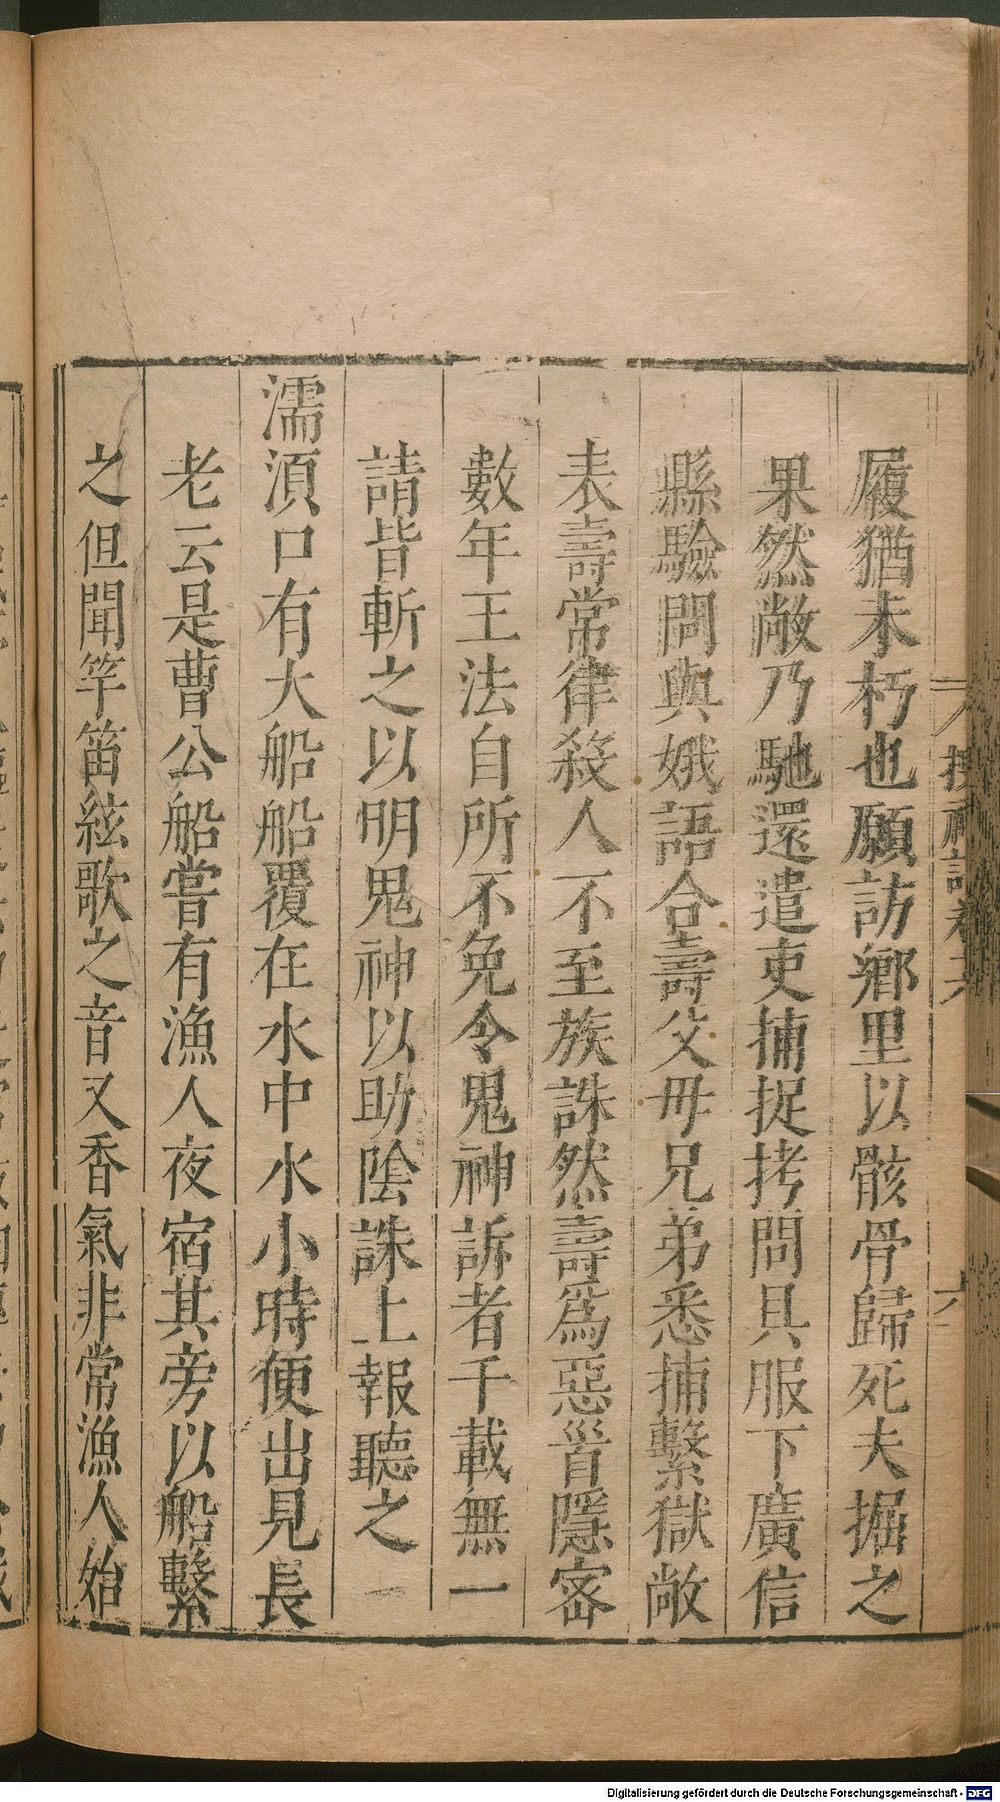 履猶未朽也願訪鄉里以骸骨歸死夫掘之
果然敞乃馳還遣吏捕捉拷問具服下廣信
縣驗問與娥語合壽父母兄弟悉捕繫獄敞
表壽常律殺人不至族誅然壽爲惡首隱密
數年王法自所不免令鬼神訴者千載無一
請皆斬之以明鬼神以助陰誅上報聽之
濡湏口有大船船覆在水中水小時便出見長
老云是曹公船嘗有漁人夜宿其旁以船繫
之但聞竽笛絃歌之音又香氣非常漁人始
Digitalisierung gefördert durch die Deutsche Forschungsgemeinschaft - DFG